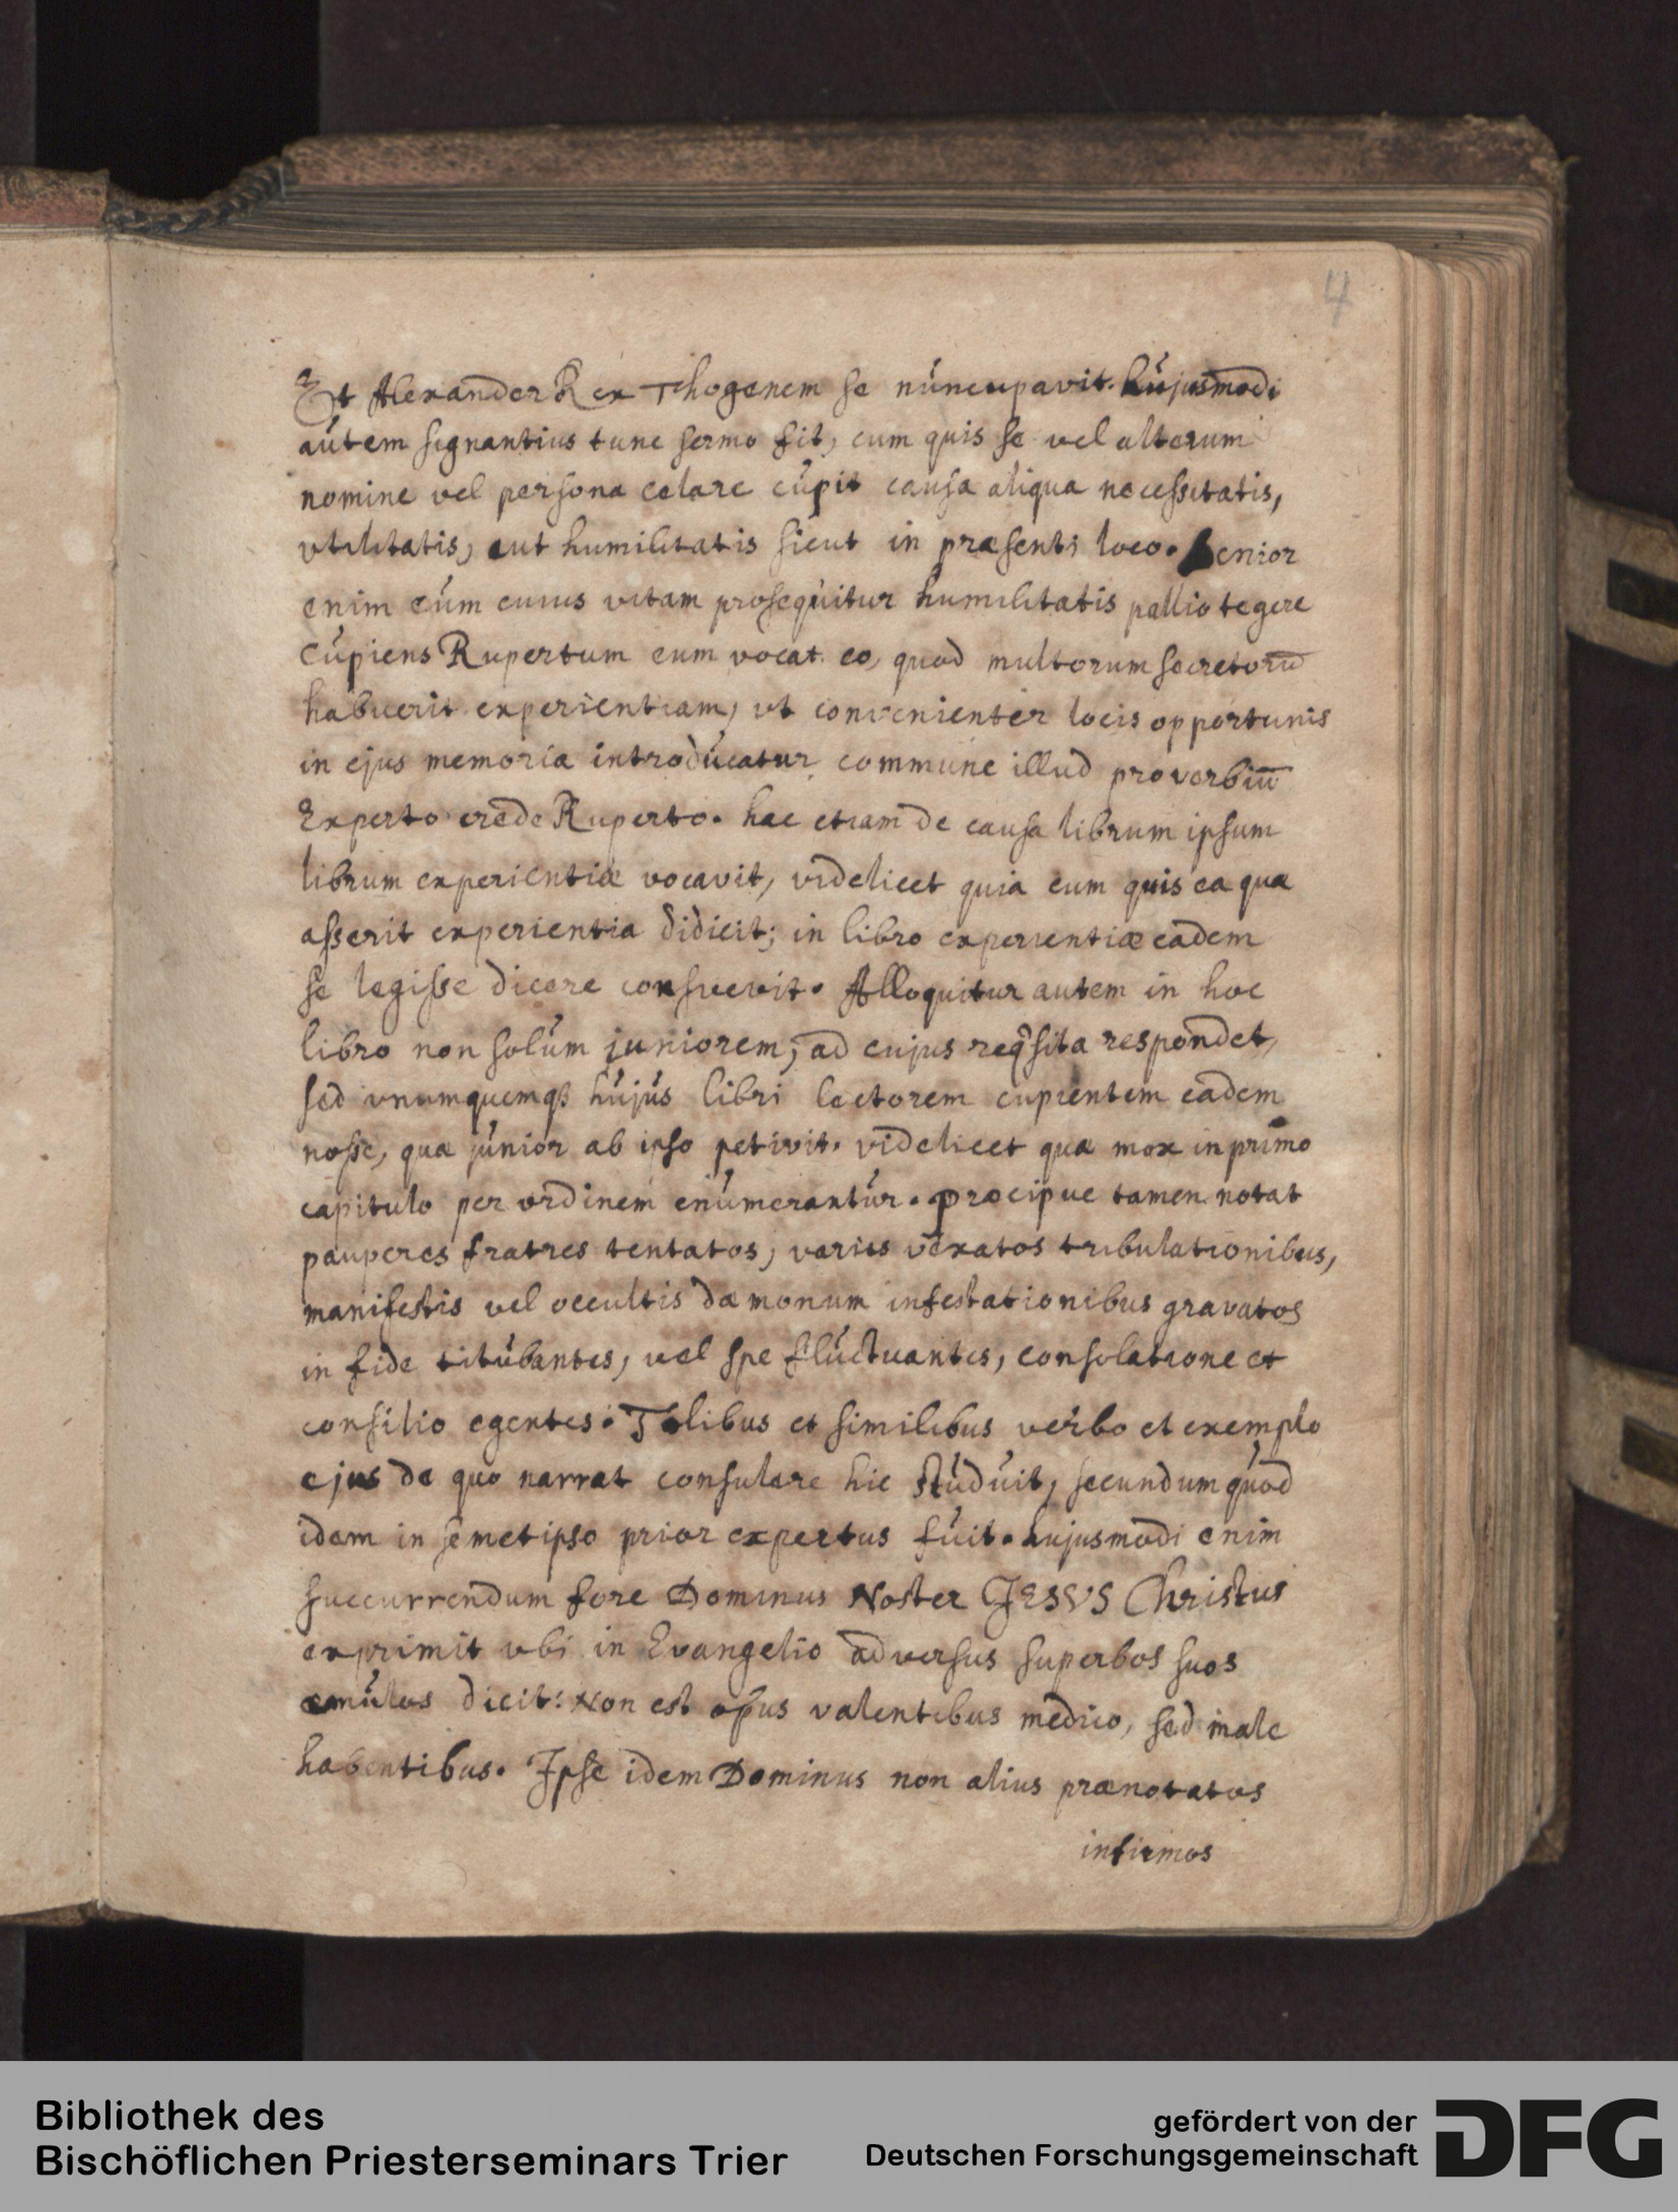 4
Et Alexander Rex Thogenem se núncupavit. hújusmodi
aútem signantius tunc sermo fit, cum quis se vel alterum
nomine vel persona celare cúpit causa aliqua necessitatis,
vtilitatis, aut humilitatis sicut in præsenti loco. Senior
enim eúm cuius vitam proseqúitur humilitatis pallio tegere
Cúpiens Rupertum eum vocat eo, quod multorum secretorū
habuerit experientiam, vt convenienter locis opportunis
in ejus memoria introdúcatur commúne illud proverbiū
Experto crede Ruperto. hac etiam de causa librum ipsum
librum experientiæ vocavit, videlicet quia cum quis ea qua
asserit experientia didicit; in libro experientiæ eadem
se legisse dicere consuevit. Alloquitur autem in hoc
libro non solúm juniorem, ad cujus reqsita respondet,
sed vnumquemqȝ hújús libri lectorem cupientem eadem
nosse, qua júnior ab ipso petivit. videlicet qua mox in primo
capitulo per ordinem enúmerantúr. Præcipue tamen notat
pauperes fratres tentatos, variis vexatos tribulationibus,
manifestis vel occultis dæmonum infestationibus gravatos
in fide titúbantes, vel spe flúctuantes, consolatione et
consilio egentes. Talibus et similibus verbo et exemplo
ejus de quo narrat consulere hic stúdúit, secundum quod
idem in semetipso prior expertus fúit. hujusmodi enim
succurrendum fore Dominus Noster JESVS Christus
exprimit vbi in Evangelio adversus superbos suos
æmúlos dicit: Non est opus valentibus medico, sed male
habentibus. Ipse idem Dominus non alius prænotatos
infirmos
Bibliothek des
Bischöflichen Priesterseminars Trier
gefördert von der
Deutschen Forschungsgemeinschaft
DFG